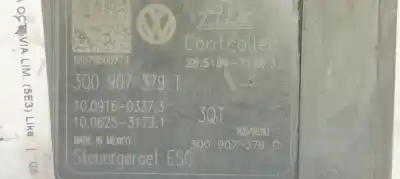 OCTAVIA LIM. (5E3) Like
Controller
3Q0 907 379 T
10.0916-0337.3
3QT
10.0625-3173.1
MADE IN MEXICO
Steuergeraet ESC
3Q0 907 379